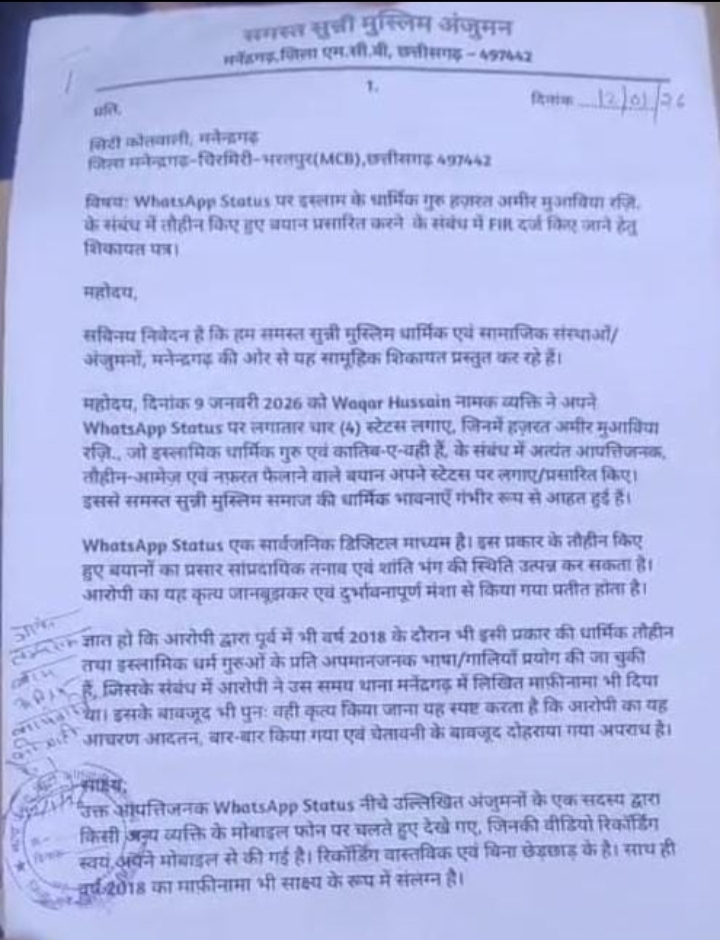 समस्त सुन्नी मुस्लिम अंजुमन
मनेंद्रगढ़,ज़िला एम.सी.बी, छत्तीसगढ़ – 497442
1.
दिनांक 12/01/26
प्रति,
सिटी कोतवाली, मनेन्द्रगढ़
जिला मनेन्द्रगढ़-चिरमिरी-भरतपुर(MCB),छत्तीसगढ़ 497442
विषय: WhatsApp Status पर इस्लाम के धार्मिक गुरु हज़रत अमीर मुआविया रज़ि.
के संबंध में तौहीन किए हुए बयान प्रसारित करने के संबंध में FIR दर्ज किए जाने हेतु
शिकायत पत्र।
महोदय,
सविनय निवेदन है कि हम समस्त सुन्नी मुस्लिम धार्मिक एवं सामाजिक संस्थाओं/
अंजुमनों, मनेन्द्रगढ़ की ओर से यह सामूहिक शिकायत प्रस्तुत कर रहे हैं।
महोदय, दिनांक 9 जनवरी 2026 को Waqar Hussain नामक व्यक्ति ने अपने
WhatsApp Status पर लगातार चार (4) स्टेटस लगाए, जिनमें हज़रत अमीर मुआविया
रज़ि., जो इस्लामिक धार्मिक गुरु एवं कातिब-ए-वही हैं, के संबंध में अत्यंत आपत्तिजनक,
तौहीन-आमेज़ एवं नफ़रत फैलाने वाले बयान अपने स्टेटस पर लगाए/प्रसारित किए।
इससे समस्त सुन्नी मुस्लिम समाज की धार्मिक भावनाएँ गंभीर रूप से आहत हुई हैं।
WhatsApp Status एक सार्वजनिक डिजिटल माध्यम है। इस प्रकार के तौहीन किए
हुए बयानों का प्रसार सांप्रदायिक तनाव एवं शांति भंग की स्थिति उत्पन्न कर सकता है।
आरोपी का यह कृत्य जानबूझकर एवं दुर्भावनापूर्ण मंशा से किया गया प्रतीत होता है।
ज्ञात हो कि आरोपी द्वारा पूर्व में भी वर्ष 2018 के दौरान भी इसी प्रकार की धार्मिक तौहीन
तथा इस्लामिक धर्म गुरुओं के प्रति अपमानजनक भाषा/गालियाँ प्रयोग की जा चुकी
हैं, जिसके संबंध में आरोपी ने उस समय थाना मनेंद्रगढ़ में लिखित माफ़ीनामा भी दिया
था। इसके बावजूद भी पुनः वही कृत्य किया जाना यह स्पष्ट करता है कि आरोपी का यह
आचरण आदतन, बार-बार किया गया एवं चेतावनी के बावजूद दोहराया गया अपराध है।
साक्ष्य:
उक्त आपत्तिजनक WhatsApp Status नीचे उल्लिखित अंजुमनों के एक सदस्य द्वारा
किसी अन्य व्यक्ति के मोबाइल फोन पर चलते हुए देखे गए, जिनकी वीडियो रिकॉर्डिंग
स्वयं अपने मोबाइल से की गई है। रिकॉर्डिंग वास्तविक एवं बिना छेड़छाड़ के है। साथ ही
वर्ष 2018 का माफ़ीनामा भी साक्ष्य के रूप में संलग्न है।